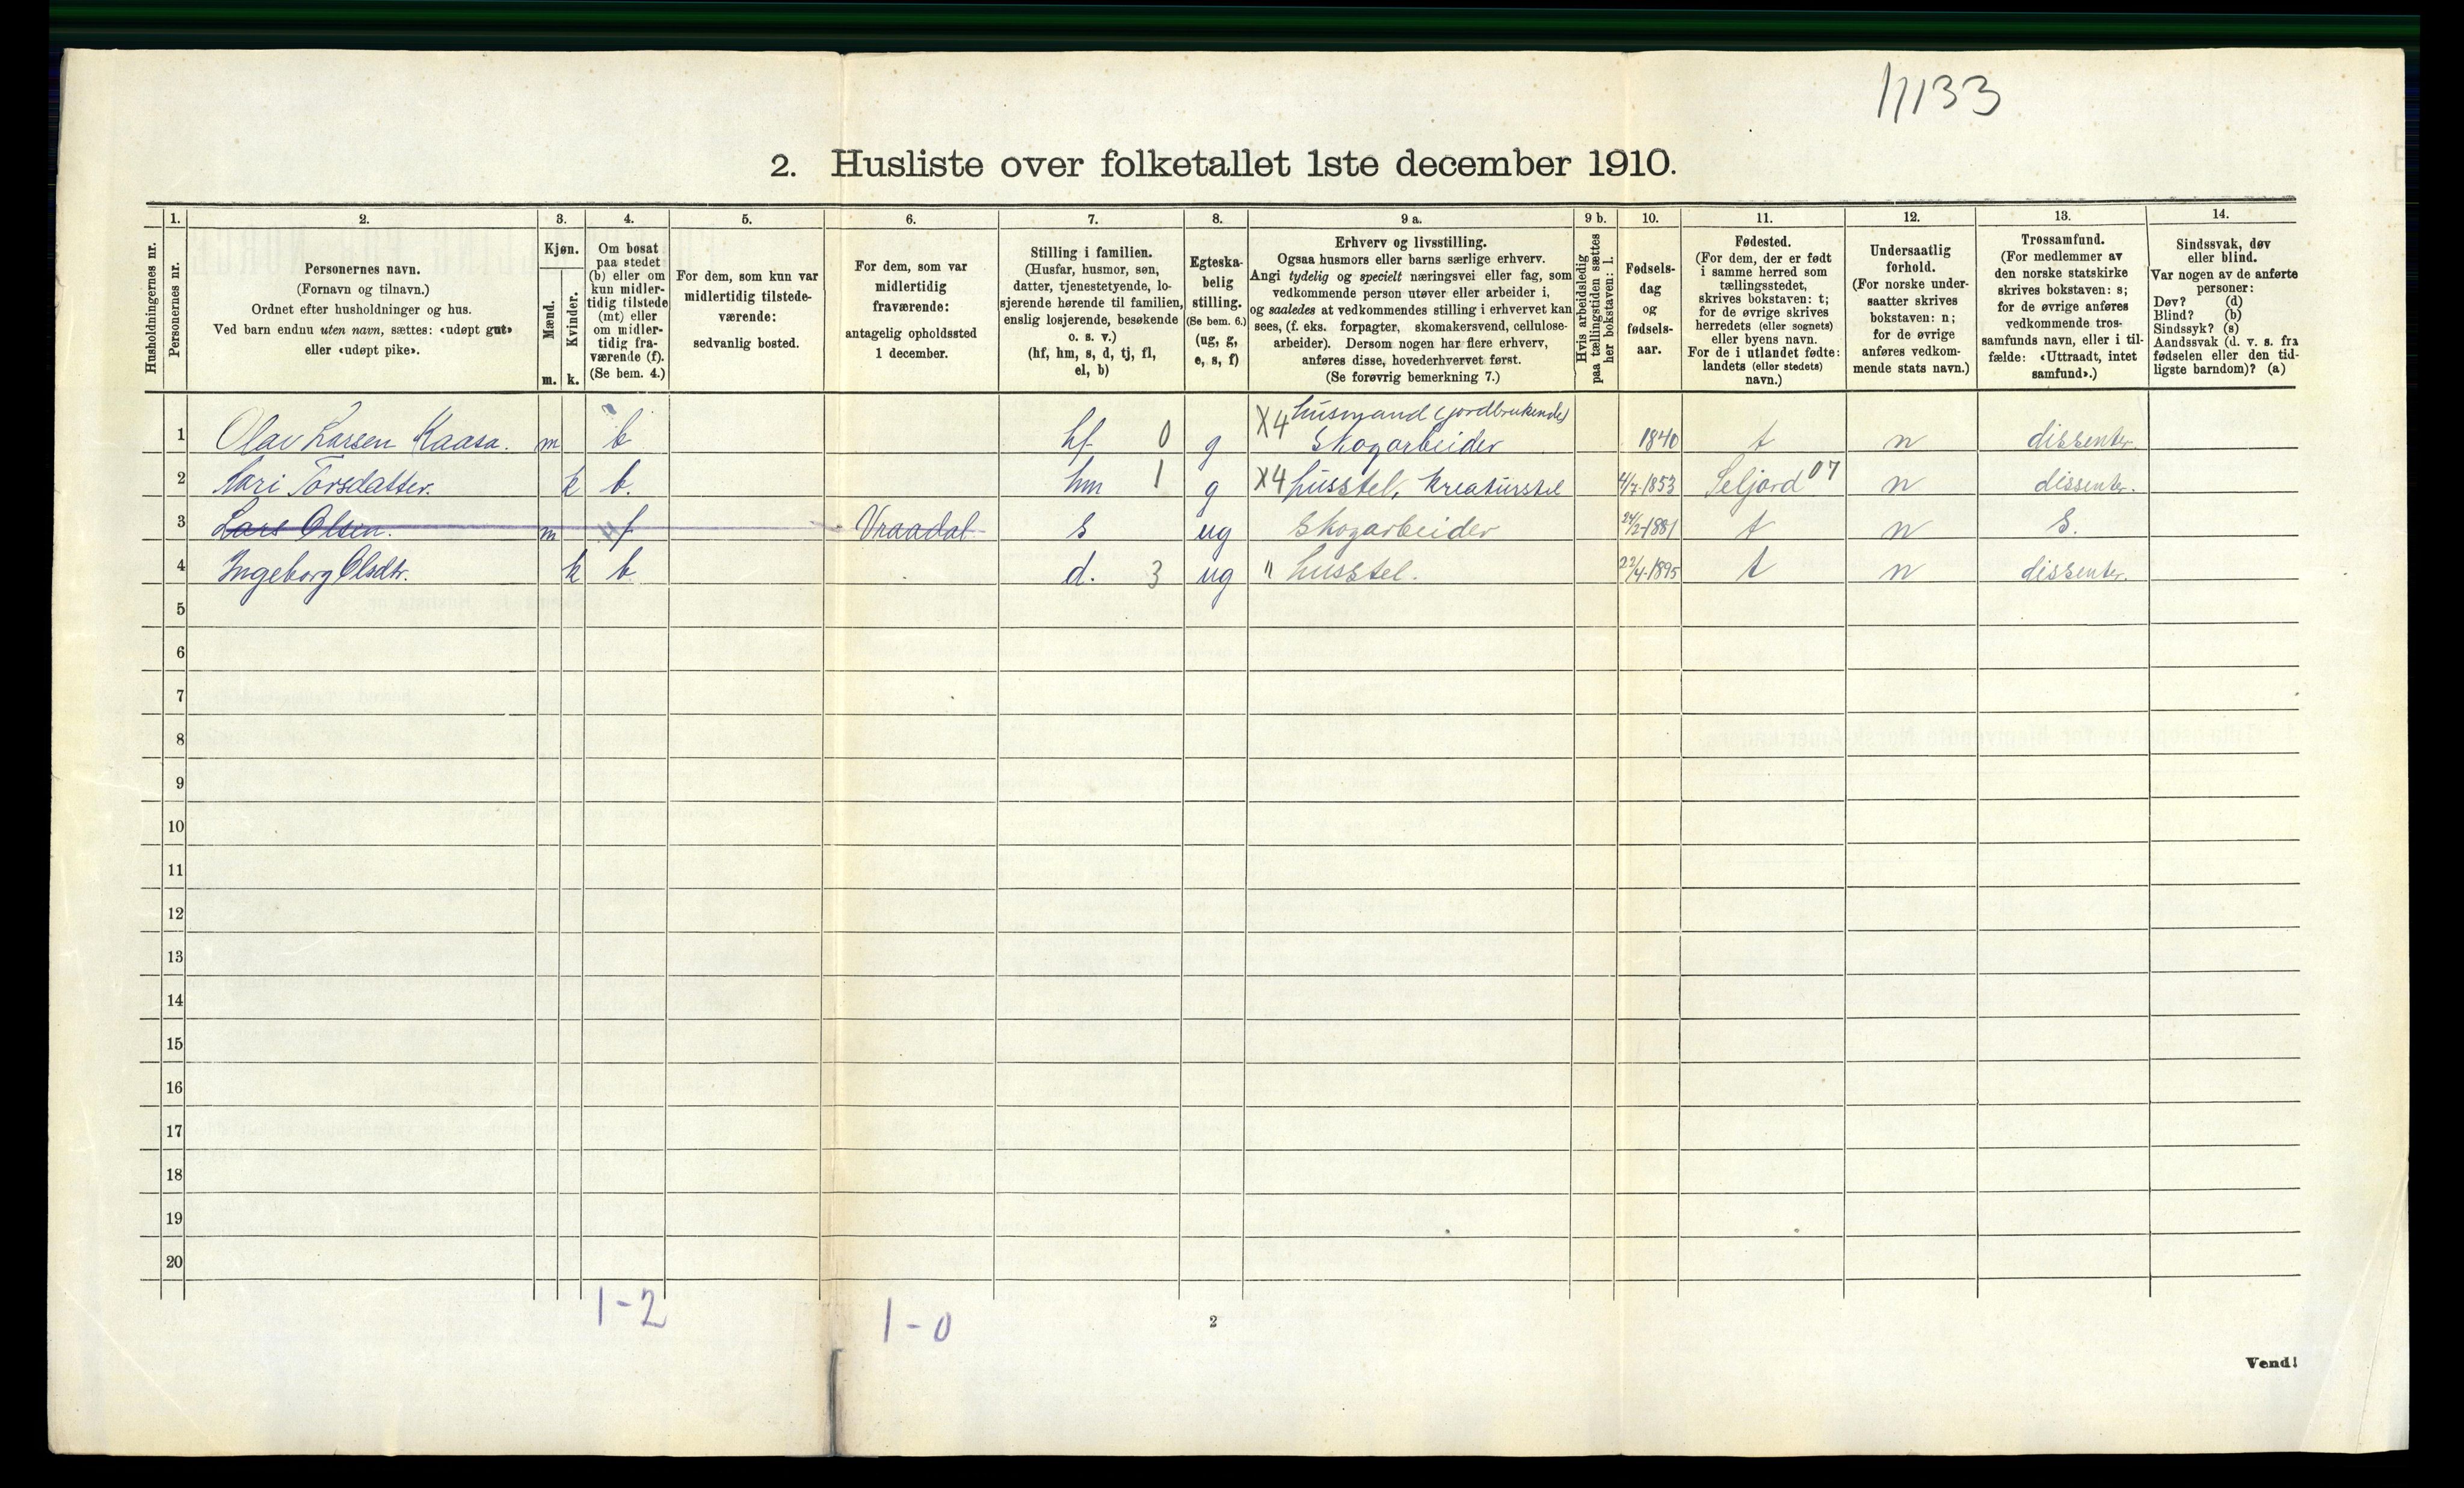 11133
2. Husliste over folketallet 1ste december 1910.
Husholdningernes nr.
1.
Personernes nr.
2.
Personernes navn.
(Fornavn og tilnavn.)
Ordnet efter husholdninger og hus.
Ved barn endnu uten navn, sættes: «udøpt gut»
eller «udøpt pike».
3.
Kjøn.
Mænd.
m.
Kvinder.
k.
4.
Om bosat
paa stedet
(b) eller om
kun midler-
tidig tilstede
(mt) eller
om midler-
tidig fra-
værende (f).
(Se bem. 4.)
5.
For dem, som kun var
midlertidig tilstede-
værende:
sedvanlig bosted.
6.
For dem, som var
midlertidig
fraværende:
antagelig opholdssted
1 december.
7.
Stilling i familien.
(Husfar, husmor, søn,
datter, tjenestetyende, lo-
sjerende hørende til familien,
enslig losjerende, besøkende
o. s. v.)
(hf, hm, s, d, tj, fl,
el, b)
8.
Egteska-
belig
stilling.
(Se bem. 6.)
(ug, g,
e, s, f)
9 a.
Erhverv og livsstilling.
Ogsaa husmors eller barns særlige erhverv.
Angi tydelig og specielt næringsvei eller fag, som
vedkommende person utøver eller arbeider i,
og saaledes at vedkommendes stilling i erhvervet kan
sees, (f. eks. forpagter, skomakersvend, cellulose-
arbeider). Dersom nogen har flere erhverv,
anføres disse, hovederhvervet først.
(Se forøvrig bemerkning 7.)
9 b.
Hvis arbeidsledig
paa tællingstiden sættes
her bokstaven: l.
10.
Fødsels-
dag
og
fødsels-
aar.
11.
Fødested.
(For dem, der er født
i samme herred som
tællingsstedet,
skrives bokstaven: t;
for de øvrige skrives
herredets (eller sognets)
eller byens navn.
For de i utlandet fødte:
landets (eller stedets)
navn.)
12.
Undersaatlig
forhold.
(For norske under-
saatter skrives
bokstaven: n;
for de øvrige
anføres vedkom-
mende stats navn.)
13.
Trossamfund.
(For medlemmer av
den norske statskirke
skrives bokstaven: s;
for de øvrige anføres
vedkommende tros-
samfunds navn, eller i til-
fælde: «Uttraadt, intet
samfund».)
14.
Sindssvak, døv
eller blind.
Var nogen av de anførte
personer:
Døv? (d)
Blind? (b)
Sindssyk? (s)
Aandssvak (d. v. s. fra
fødselen eller den tid-
ligste barndom)? (a)
husmand (jordbrukende)
1 Olav Larsen Kaasa. m b hf 0 g X4 Skogarbeider 1840 t n dissenter.
2 Kari Torsdatter. k b. hm 1 g X4 husstel, kreaturstel 4/7-1853 Seljord 07 n dissenter.
3 Lars Olsen. m f Vraadal s ug Skogarbeider 24/2-1881 t n S.
4 Ingeborg Olsdtr. k b d. 3 ug " husstel. 22/4-1895 t n dissenter.
5
6
7
8
9
10
11
12
13
14
15
16
17
18
19
20
1-2
1-0
2
Vend!